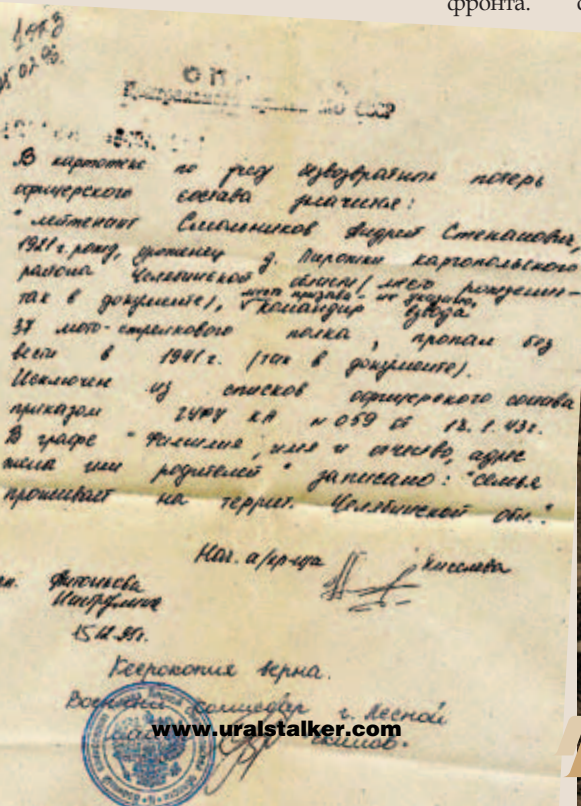 фронта.
1973
Центрального архива МО СССР
В картотеке по учету безвозвратных потерь
офицерского состава значится:
"лейтенант Смольников Андрей Степанович,
1921 г. рожд, уроженец д. Пирожки каргопольского
района Челябинской области (место рождения -
так в документе), место призыва - не указано, командир взвода
37 мото-стрелкового полка, пропал без
вести в 1941 г. (так в документе).
Исключен из списков офицерского состава
приказом ГУФУ КА № 059 от 13.1.43 г.
В графе "Фамилия, имя и отчество, адрес
жены или родителей" записано: "семья
проживает на террит. Челябинской обл."
Нач. а/хр-ща Киселева
15.12.95г.
Ксерокопия верна.
Военный комиссар г. Лесной
www.uralstalker.com